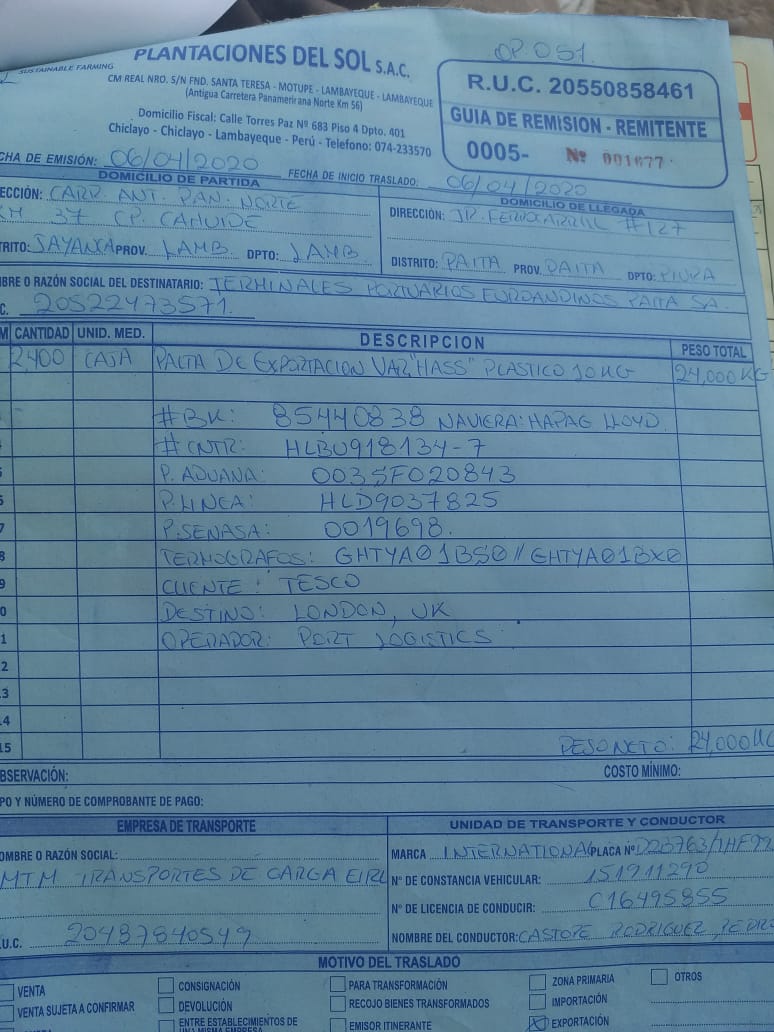 SUSTAINABLE FARMING
PLANTACIONES DEL SOL S.A.C.
CM REAL NRO. S/N FND. SANTA TERESA - MOTUPE - LAMBAYEQUE - LAMBAYEQUE
(Antigua Carretera Panamerirana Norte Km 56)
Domicilio Fiscal: Calle Torres Paz Nº 683 Piso 4 Dpto. 401
Chiclayo - Chiclayo - Lambayeque - Perú - Telefono: 074-233570
OP 051
R.U.C. 20550858461
GUIA DE REMISION - REMITENTE
0005- Nº 001677
CHA DE EMISIÓN: 06/04/2020 FECHA DE INICIO TRASLADO: 06/04/2020
DOMICILIO DE PARTIDA
ECCIÓN: CARR. ANT. PAN. NORTE
KM 37 CP. CAHUIDE
TRITO: PROV. LAMB DPTO: LAMB
DOMICILIO DE LLEGADA
DIRECCIÓN: JR. FERROCARRIL #127
DISTRITO: PAITA PROV. PAITA DPTO: PIURA
BRE O RAZÓN SOCIAL DEL DESTINATARIO: TERMINALES PORTUARIOS EUROANDINOS PAITA SA.
C. 20522473571.
M CANTIDAD UNID. MED. DESCRIPCION PESO TOTAL
2,400 CAJA PALTA DE EXPORTACION VAR. "HASS" PLASTICO 10KG 24,000KG
#BK: 85440838 NAVIERA: HAPAG LLOYD
#CNTR: HLBU918134-7
5 P. ADUANA: 0035F020843
6 P. LINEA: HLD9037825
7 P. SENASA: 0019698.
8 TERMOGRAFOS: GHTYA01BS0 // GHTYA01BX0
9 CLIENTE: TESCO
0 DESTINO: LONDON, UK
1 OPERADOR: PORT LOGISTICS
2
13
14
15 PESO NETO: 24,000KG
BSERVACIÓN: COSTO MÍNIMO:
PO Y NÚMERO DE COMPROBANTE DE PAGO:
EMPRESA DE TRANSPORTE
OMBRE O RAZÓN SOCIAL:
MTM TRANSPORTES DE CARGA EIRL
.U.C. 20487840549
UNIDAD DE TRANSPORTE Y CONDUCTOR
MARCA INTERNATIONAL PLACA Nº
Nº DE CONSTANCIA VEHICULAR: 151911290
Nº DE LICENCIA DE CONDUCIR: C16495855
NOMBRE DEL CONDUCTOR: RODRIGUEZ, PEDRO
MOTIVO DEL TRASLADO
VENTA
VENTA SUJETA A CONFIRMAR
CONSIGNACIÓN
DEVOLUCIÓN
ENTRE ESTABLECIMIENTOS DE
UNA MISMA EMPRESA
PARA TRANSFORMACIÓN
RECOJO BIENES TRANSFORMADOS
EMISOR ITINERANTE
ZONA PRIMARIA
IMPORTACIÓN
EXPORTACIÓN
OTROS